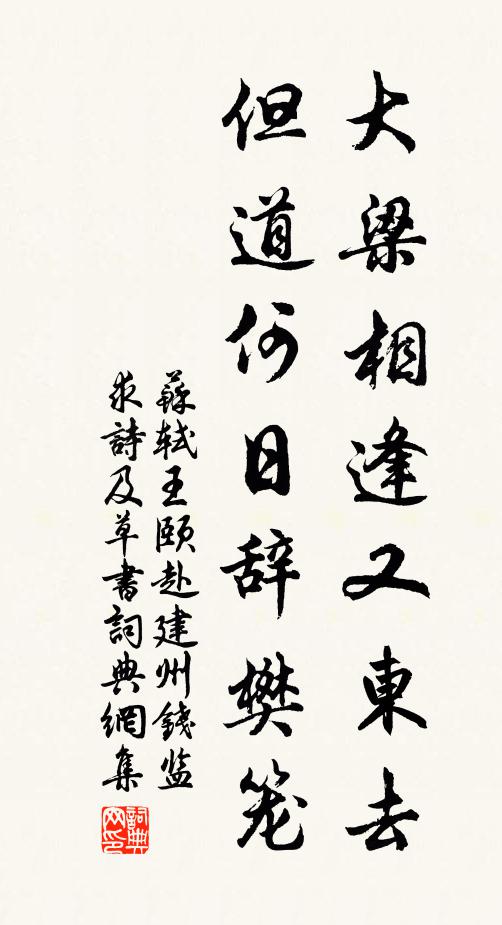 大梁相逢又東去
但道何日辞樊笼
蘇軾王頤赴建州錢监
求詩及草書詞典網集
詞典网印